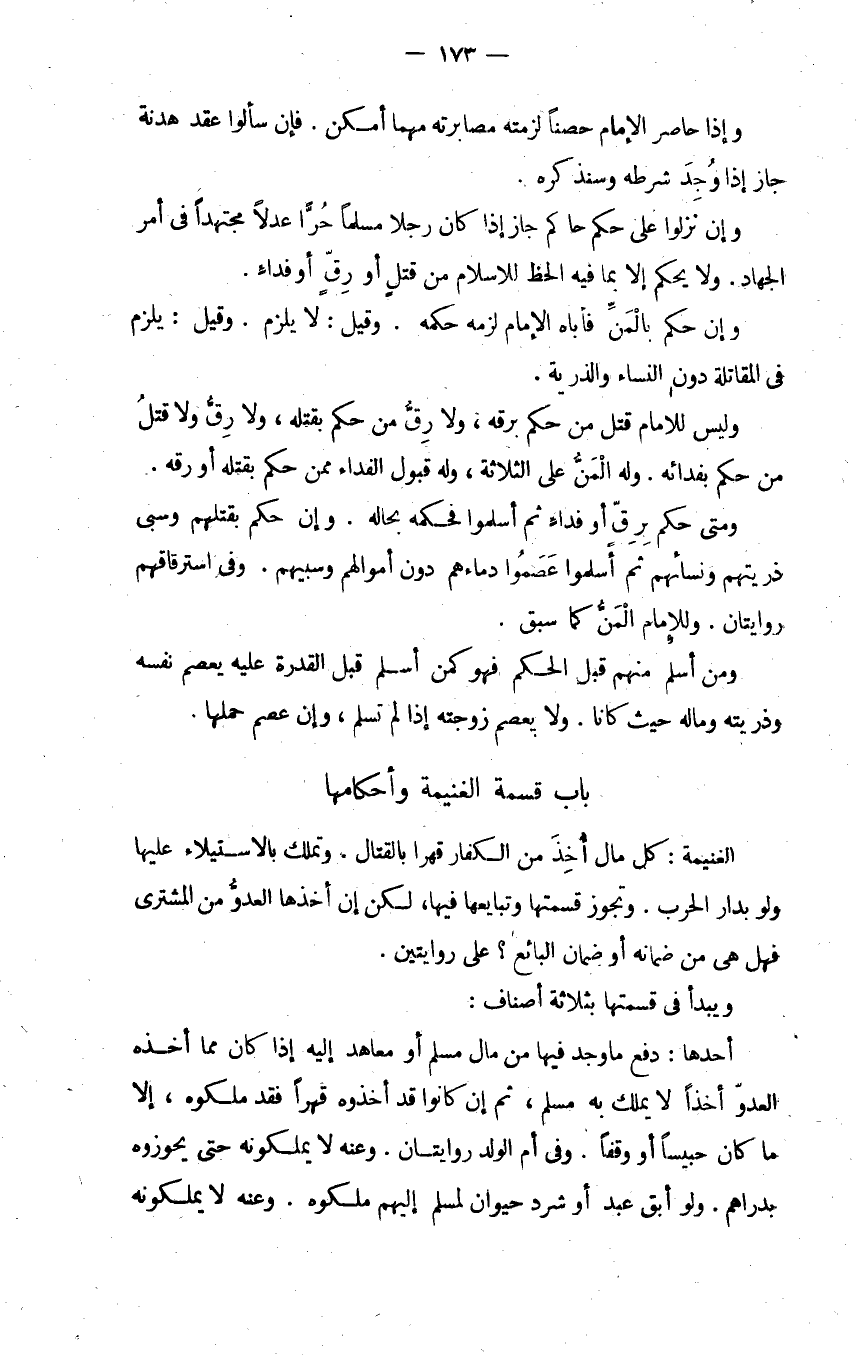 — ١٧٣ —
وإذا حاصر الإمام حصناً لزمته مصابرته مهما أمكن . فإن سألوا عقد هدنة
جاز إذا وُجِدَ شرطه وسنذكره .
وإن نزلوا على حكم حاكم جاز إذا كان رجلا مسلماً حُرًّا عدلاً مجتهداً فى أمر
الجهاد . ولا يحكم إلا بما فيه الحظ للاسلام من قتلٍ أو رِقّ أو فداء .
وإن حكم بالْمَنِّ فأباه الإمام لزمه حكمه . وقيل : لا يلزم . وقيل : يلزم
فى المقاتلة دون النساء والذرية .
وليس للامام قتل من حكم برقه ، ولا رِقُّ من حكم بقتله ، ولا رِقُّ ولا قتلُ
من حكم بفدائه . وله الْمَنُّ على الثلاثة ، وله قبول الفداء ممن حكم بقتله أو رقه .
ومتى حكم بِرِقّ أو فداء ثم أسلموا فحكمه بحاله . وإن حكم بقتلهم وسبى
ذريتهم ونسائهم ثم أسلموا عَصَمُوا دماءهم دون أموالهم وسبيهم . وفى استرقاقهم
روايتان . وللإمام الْمَنُّ كما سبق .
ومن أسلم منهم قبل الحكم فهو كمن أسلم قبل القدرة عليه يعصم نفسه
وذريته وماله حيث كانا . ولا يعصم زوجته إذا لم تسلم ، وإن عصم حملها .
باب قسمة الغنيمة وأحكامها
الغنيمة : كل مال أُخِذَ من الكفار قهرا بالقتال . وتملك بالاستيلاء عليها
ولو بدار الحرب . وتجوز قسمتها وتبايعها فيها، لكن إن أخذها العدوُّ من المشترى
فهل هى من ضمانه أو ضمان البائع ؟ على روايتين .
ويبدأ فى قسمتها بثلاثة أصناف :
أحدها : دفع ماوجد فيها من مال مسلم أو معاهد إليه إذا كان مما أخذه
العدوّ أخذاً لا يملك به مسلم ، ثم إن كانوا قد أخذوه قهراً فقد ملكوه ، إلا
ما كان حبيساً أو وقفاً . وفى أم الولد روايتان . وعنه لا يملكونه حتى يحوزوه
بدراهم . ولو أبق عبد أو شرد حيوان لمسلم إليهم ملكوه . وعنه لا يملكونه